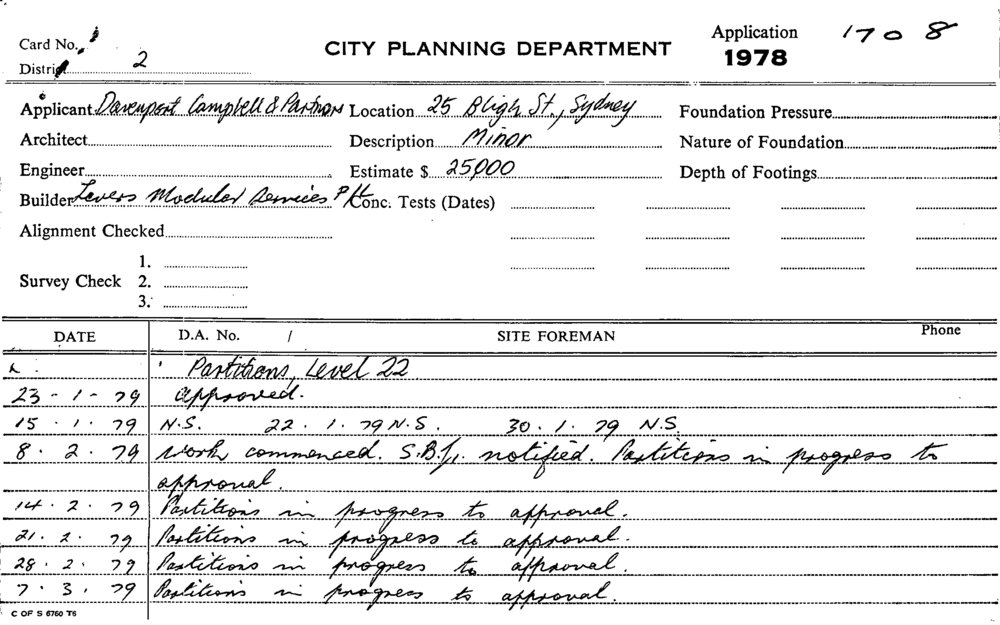 Card No.
CITY PLANNING DEPARTMENT
Application 1708
1978
District 2
Applicant Davenport Campbell & Partners Location 25 Bligh St., Sydney Foundation Pressure
Architect Description Minor Nature of Foundation
Engineer Estimate $ 25,000 Depth of Footings
Builder Levers Modular Services P/L Conc. Tests (Dates)
Alignment Checked
1.
Survey Check 2.
3.
DATE D.A. No. / SITE FOREMAN Phone
Partitions, Level 22
23 - 1 - 79 approved.
15 . 1 . 79 N.S. 22 . 1 . 79 N.S. 30 . 1 . 79 N.S.
8 . 2 . 79 work commenced. notified. Partitions in progress to
approval.
14 . 2 . 79 Partitions in progress to approval.
21 . 2 . 79 Partitions in progress to approval.
28 . 2 . 79 Partitions in progress to approval.
7 . 3 . 79 Partitions in progress to approval.
C OF S 6760 T6